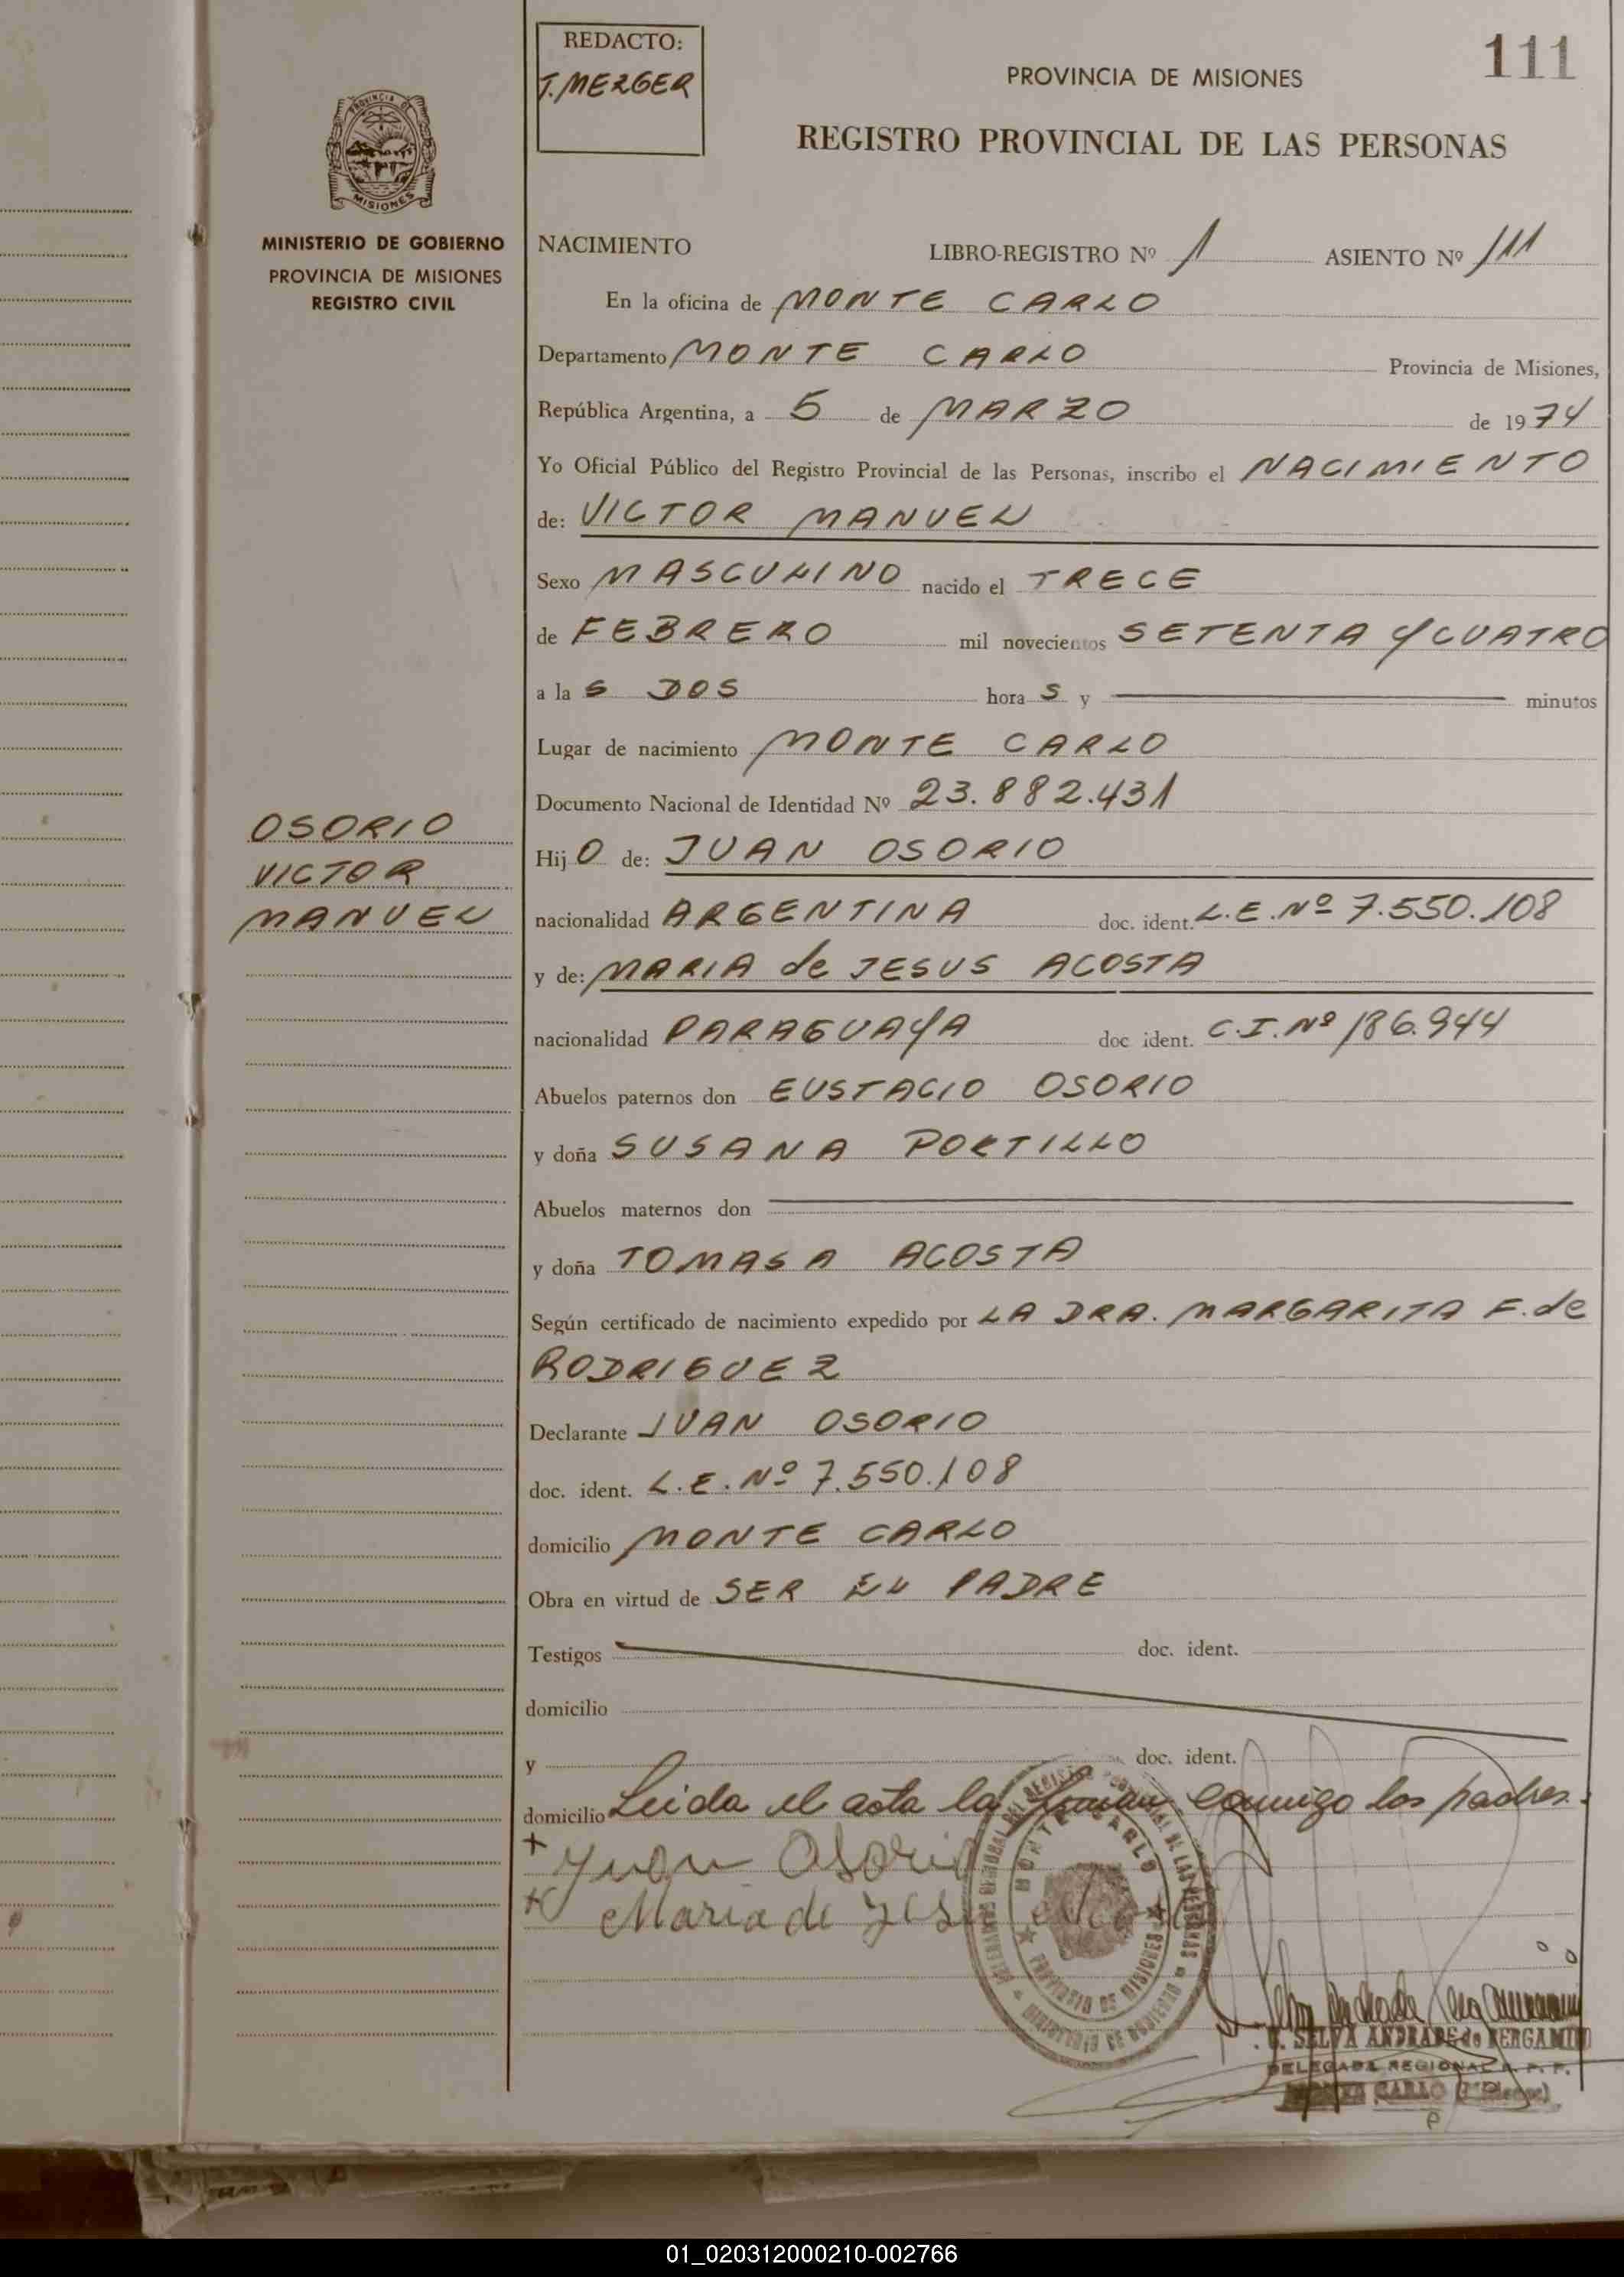 REDACTO:
T. MERGER
111
PROVINCIA DE MISIONES
REGISTRO PROVINCIAL DE LAS PERSONAS
PROVINCIA DE
MISIONES
MINISTERIO DE GOBIERNO
PROVINCIA DE MISIONES
REGISTRO CIVIL
NACIMIENTO LIBRO-REGISTRO Nº 1 ASIENTO Nº 111
En la oficina de MONTE CARLO
Departamento MONTE CARLO Provincia de Misiones,
República Argentina, a 5 de MARZO de 1974
Yo Oficial Público del Registro Provincial de las Personas, inscribo el NACIMIENTO
de: VICTOR MANUEL
Sexo MASCULINO nacido el TRECE
de FEBRERO mil novecientos SETENTA Y CUATRO
a la s DOS hora s y minutos
Lugar de nacimiento MONTE CARLO
Documento Nacional de Identidad Nº 23.882.431
OSORIO
VICTOR
MANUEL
Hij O de: JUAN OSORIO
nacionalidad ARGENTINA doc. ident. L.E.Nº 7.550.108
y de: MARIA de JESUS ACOSTA
nacionalidad PARAGUAYA doc ident. C.I.Nº 186.944
Abuelos paternos don EUSTACIO OSORIO
y doña SUSANA PORTILLO
Abuelos maternos don
y doña TOMASA ACOSTA
Según certificado de nacimiento expedido por LA DRA. MARGARITA F. de
RODRIGUEZ
Declarante JUAN OSORIO
doc. ident. L.E.Nº 7.550.108
domicilio MONTE CARLO
Obra en virtud de SER EL PADRE
Testigos doc. ident.
domicilio
y doc. ident.
domicilio Leida el acta la firman conmigo los padres.
+ Juan Osorio
+ Maria de Jes
MONTE CARLO
PROVINCIA DE MISIONES
MINISTERIO DE GOBIERNO
SELVA ANDRADE de BERGAMINO
DELEGADA REGIONAL R. P. P.
MONTE CARLO (Misiones)
01_020312000210-002766